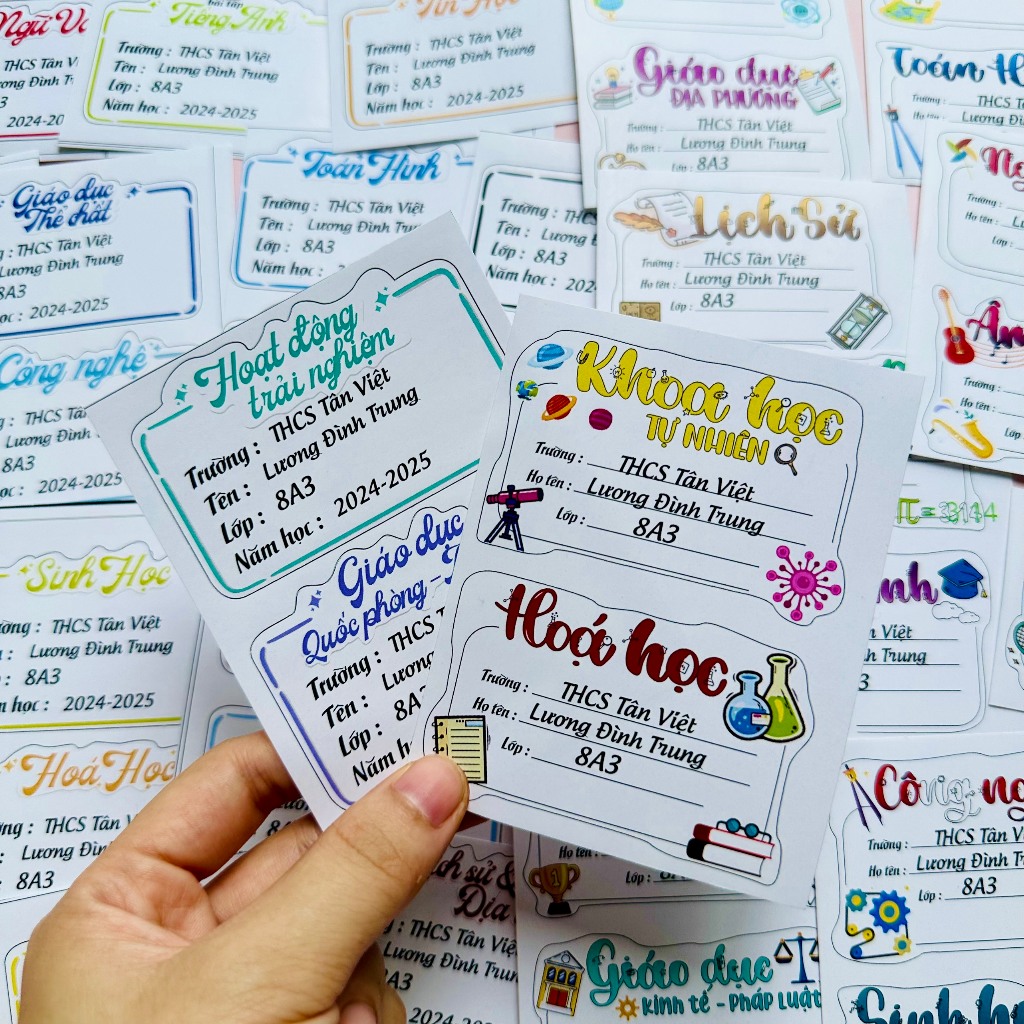 Ngữ
bài tập
Tiếng Anh
Trường : THCS Tân Việt
Tên : Lương Đình Trung
Lớp : 8A3
Năm học : 2024-2025
Tin Học
Trường : THCS Tân Việt
Tên : Lương Đình Trung
Lớp : 8A3
Năm học : 2024-2025
Giáo dục
ĐỊA PHƯƠNG
Trường : THCS Tân Việt
Họ tên : Lương Đình Trung
Lớp : 8A3
Toán
Trường : THCS Tân Việt
Họ tên : Lương Đình
Lớp : 8A3
Giáo dục
Thể chất
THCS Tân Việt
Lương Đình Trung
8A3
2024-2025
Toán Hình
Trường : THCS Tân Việt
Tên : Lương Đình Trung
Lớp : 8A3
Năm học :
Trường : THCS
Tên : Lương
Lớp : 8A3
Lịch Sử
Trường : THCS Tân Việt
Họ tên : Lương Đình Trung
Lớp : 8A3
Trường :
Họ tên :
Lớp :
Âm
Trường :
Họ tên :
Lớp :
Công nghệ
THCS Tân Việt
Lương Đình
8A3
2024-2025
Hoạt động
trải nghiệm
Trường : THCS Tân Việt
Tên : Lương Đình Trung
Lớp : 8A3
Năm học : 2024-2025
Giáo dục
Quốc phòng -
Trường : THCS
Tên : Lương
Lớp : 8A
Năm h
Khoa học
TỰ NHIÊN
Trường : THCS Tân Việt
Họ tên : Lương Đình Trung
Lớp : 8A3
Hoá học
Trường : THCS Tân Việt
Họ tên : Lương Đình Trung
Lớp : 8A3
Sinh Học
THCS Tân Việt
Lương Đình Trung
8A3
2024-2025
Hoá Học
THCS Tân Việt
Lương Đình Trung
8A3
Địa
THCS Tân Việt
Lương Đình Trung
8A3
2024-2025
Họ tên :
Lớp :
Giáo dục
Kinh tế - Pháp Luật
Việt
Đình Trung
Công
Trường : THCS Tân Việt
Họ tên : Lương Đình Trung
Lớp : 8A3
Sinh